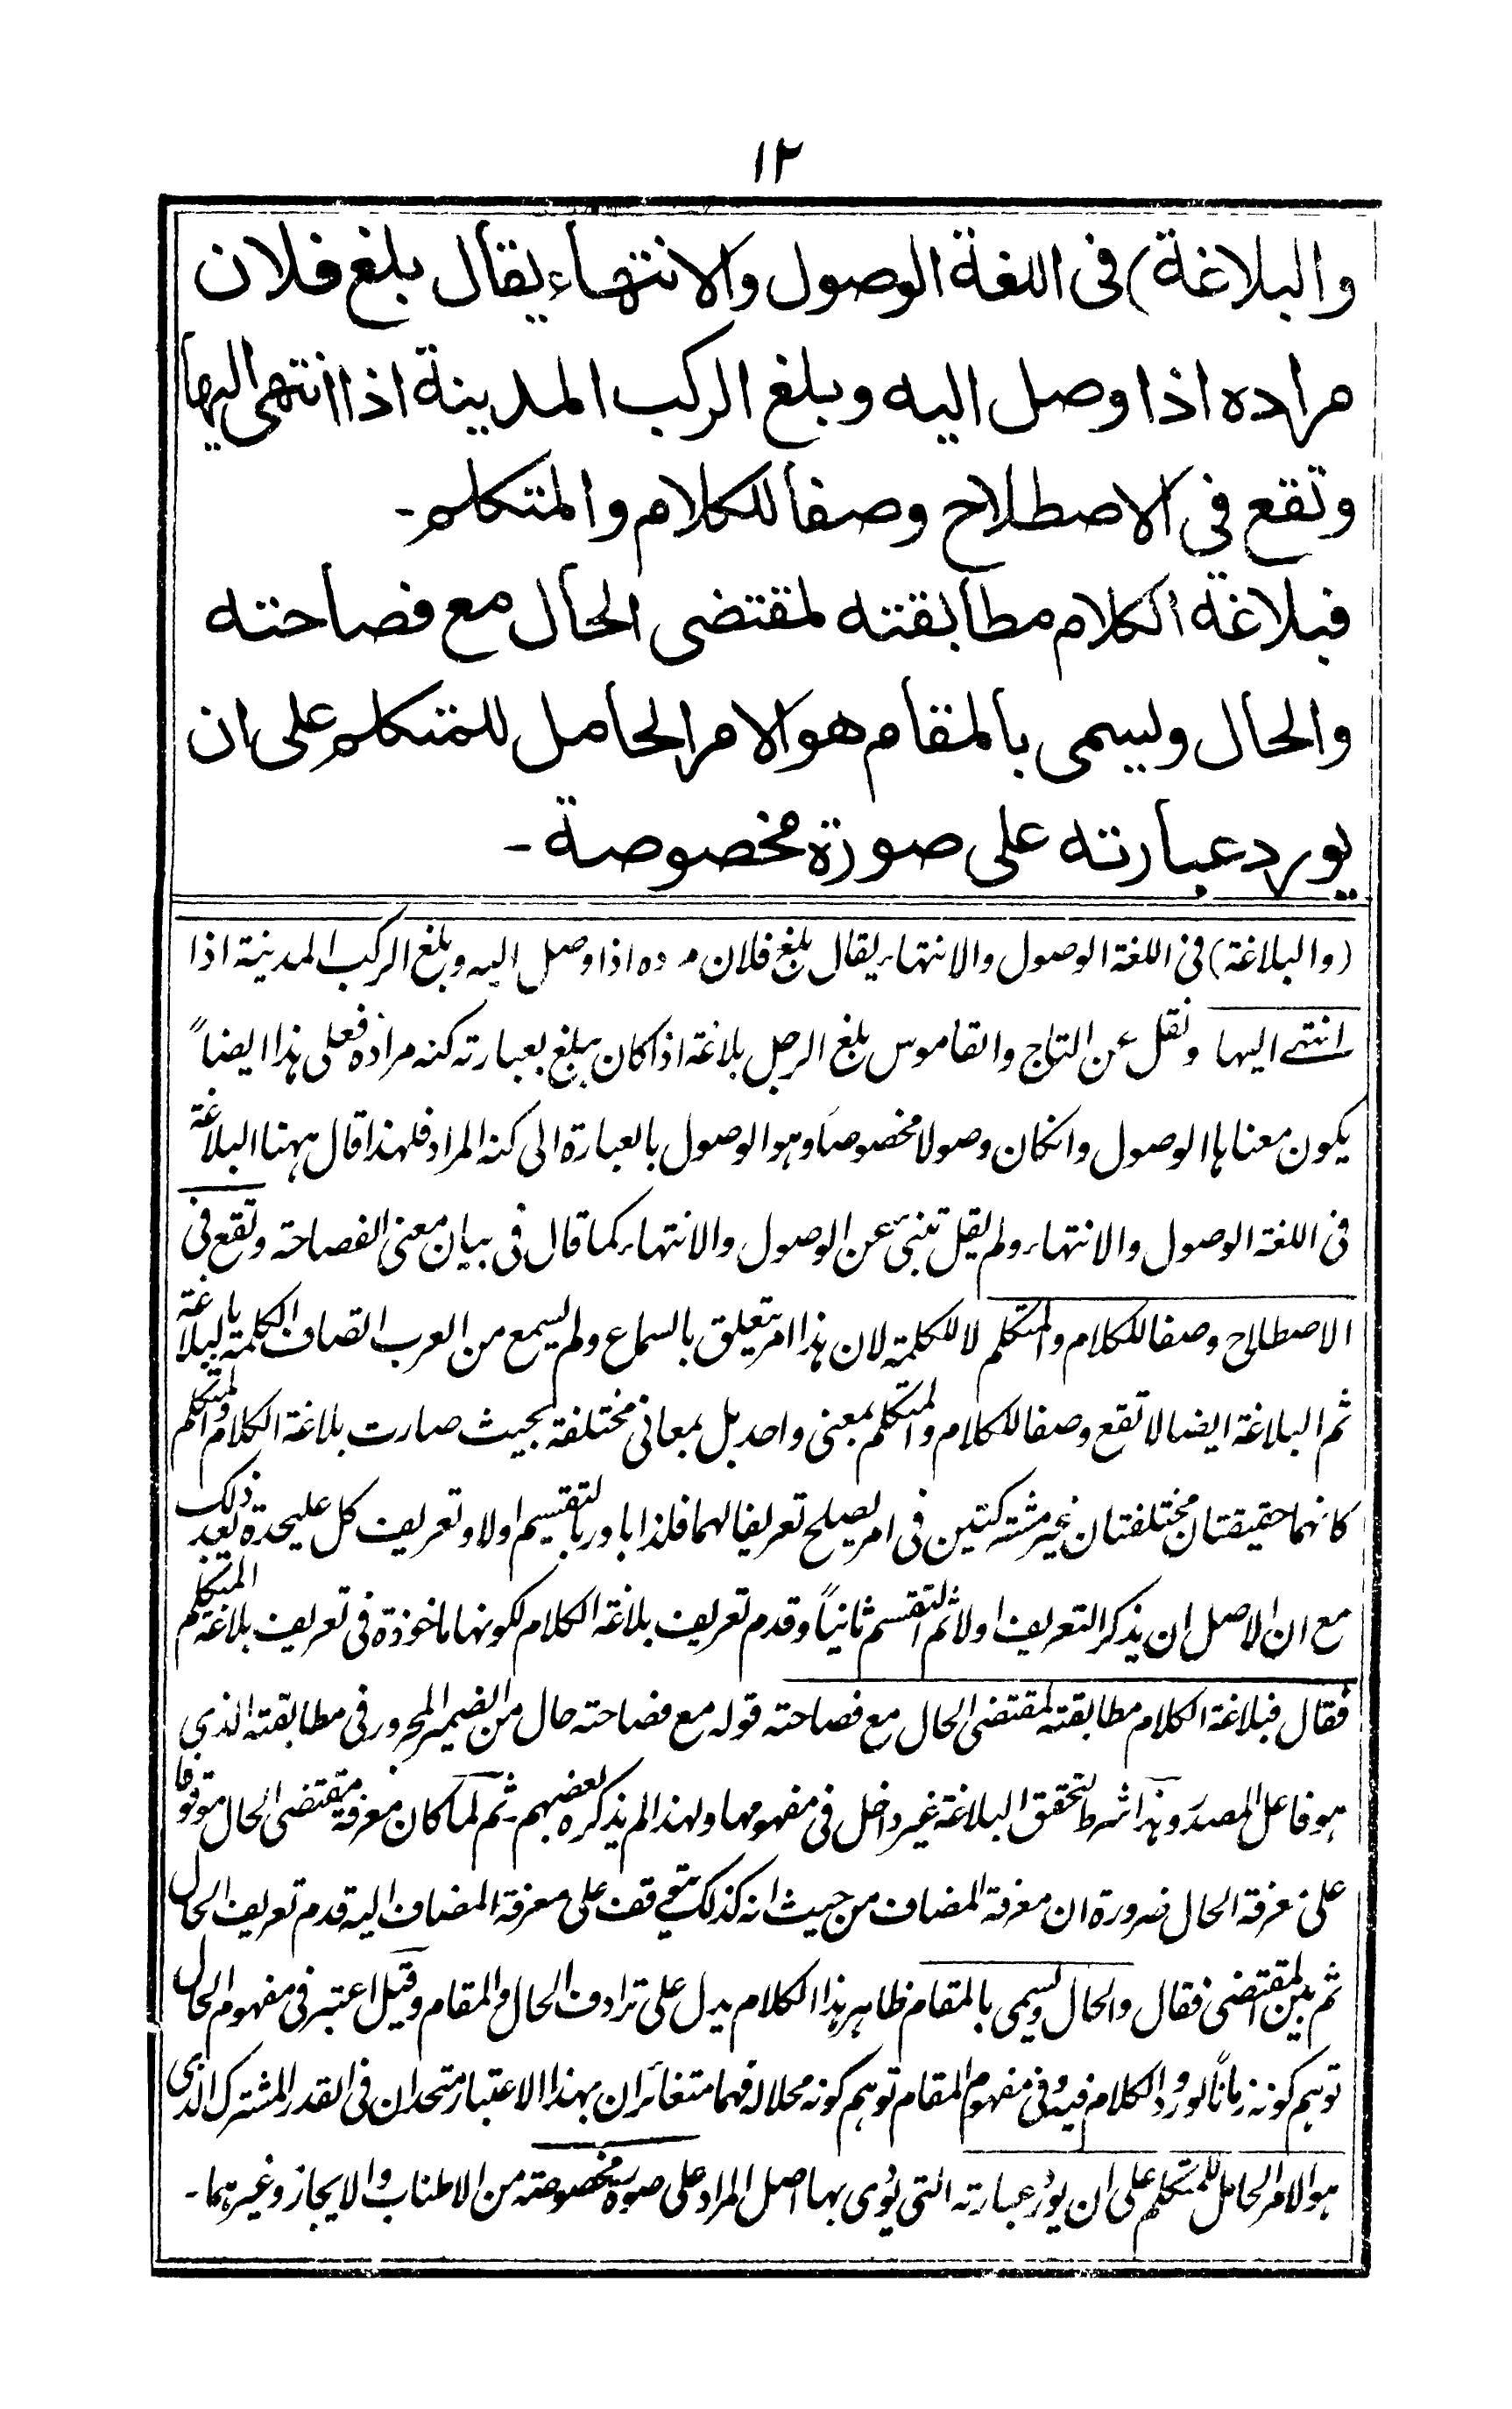 ١٢
والبلاغة) فى اللغة الوصول والانتهاء يقال بلغ فلان
مراده اذا وصل اليه وبلغ الركب المدينة اذا انتهى اليها
وتقع فى الاصطلاح وصفا للكلام والمتكلم۔
فبلاغة الكلام مطابقته لمقتضى الحال مع فصاحته
والحال ويسمى بالمقام هو الامر الحامل للمتكلم على ان
يورد عبارته على صورة مخصوصة۔
(والبلاغة) فى اللغة الوصول والانتهاء يقال بلغ فلان مر ده اذا وصل اليه وبلغ الركب المدينة اذا
انتهى اليها ونقل عن التاج والقاموس بلغ الرجل بلاغة اذا كان يبلغ بعبارته كنه مراده فعلى هذا ايضاً
يكون معناها الوصول وانكان وصولا مخصوصا وهو الوصول بالعبارة الى كنه المراد فلهذا قال ههنا البلاغة
فى اللغة الوصول والانتهاء ولم يقل تنبئ عن الوصول والانتهاء كما قال فى بيان معنى الفصاحة وتقع فى
الاصطلاح وصفا للكلام والمتكلم لا للكلمة لان هذا امر يتعلق بالسماع ولم يسمع من العرب اتصاف الكلمة بالبلاغة
ثم البلاغة ايضا لا تقع وصفا للكلام والمتكلم بمعنى واحد بل بمعانى مختلفة بحيث صارت بلاغة الكلام والمتكلم
كانهما حقيقتان مختلفتان غير مشتركتين فى امر يصلح تعريفا لهما فلذا بادر بالتقسيم اولا وتعريف كل عليحدة بعد ذلك
مع ان الاصل ان يذكر التعريف اولا ثم التقسيم ثانياً وقدم تعريف بلاغة الكلام لكونها ماخوذة فى تعريف بلاغة المتكلم
فقال فبلاغة الكلام مطابقته لمقتضى الحال مع فصاحته قوله مع فصاحته حال من الضمير المجرور فى مطابقته الذى
هو فاعل المصدر وهذا شرط لتحقق البلاغة غير داخل فى مفهومها ولهذا لم يذكره بعضهم۔ ثم لما كان معرفة مقتضى الحال موقوفا
على معرفة الحال ضرورة ان معرفة المضاف من حيث انه كذلك يتوقف على معرفة المضاف اليه قدم تعريف الحال
ثم بين المقتضى فقال والحال ويسمى بالمقام ظاهر هذا الكلام يدل على ترادف الحال والمقام وقيل اعتبر فى مفهوم الحال
توهم كونه زماناً لورود الكلام فيه وفى مفهوم المقام توهم كونه محلا له فهما متغائران بهذا الاعتبار متحدان فى القدر المشترك الذى
هو الامر الحامل للمتكلم على ان يورد عبارته التى يؤدى بها اصل المراد على صورة مخصوصة من الاطناب والايجاز وغيرهما۔